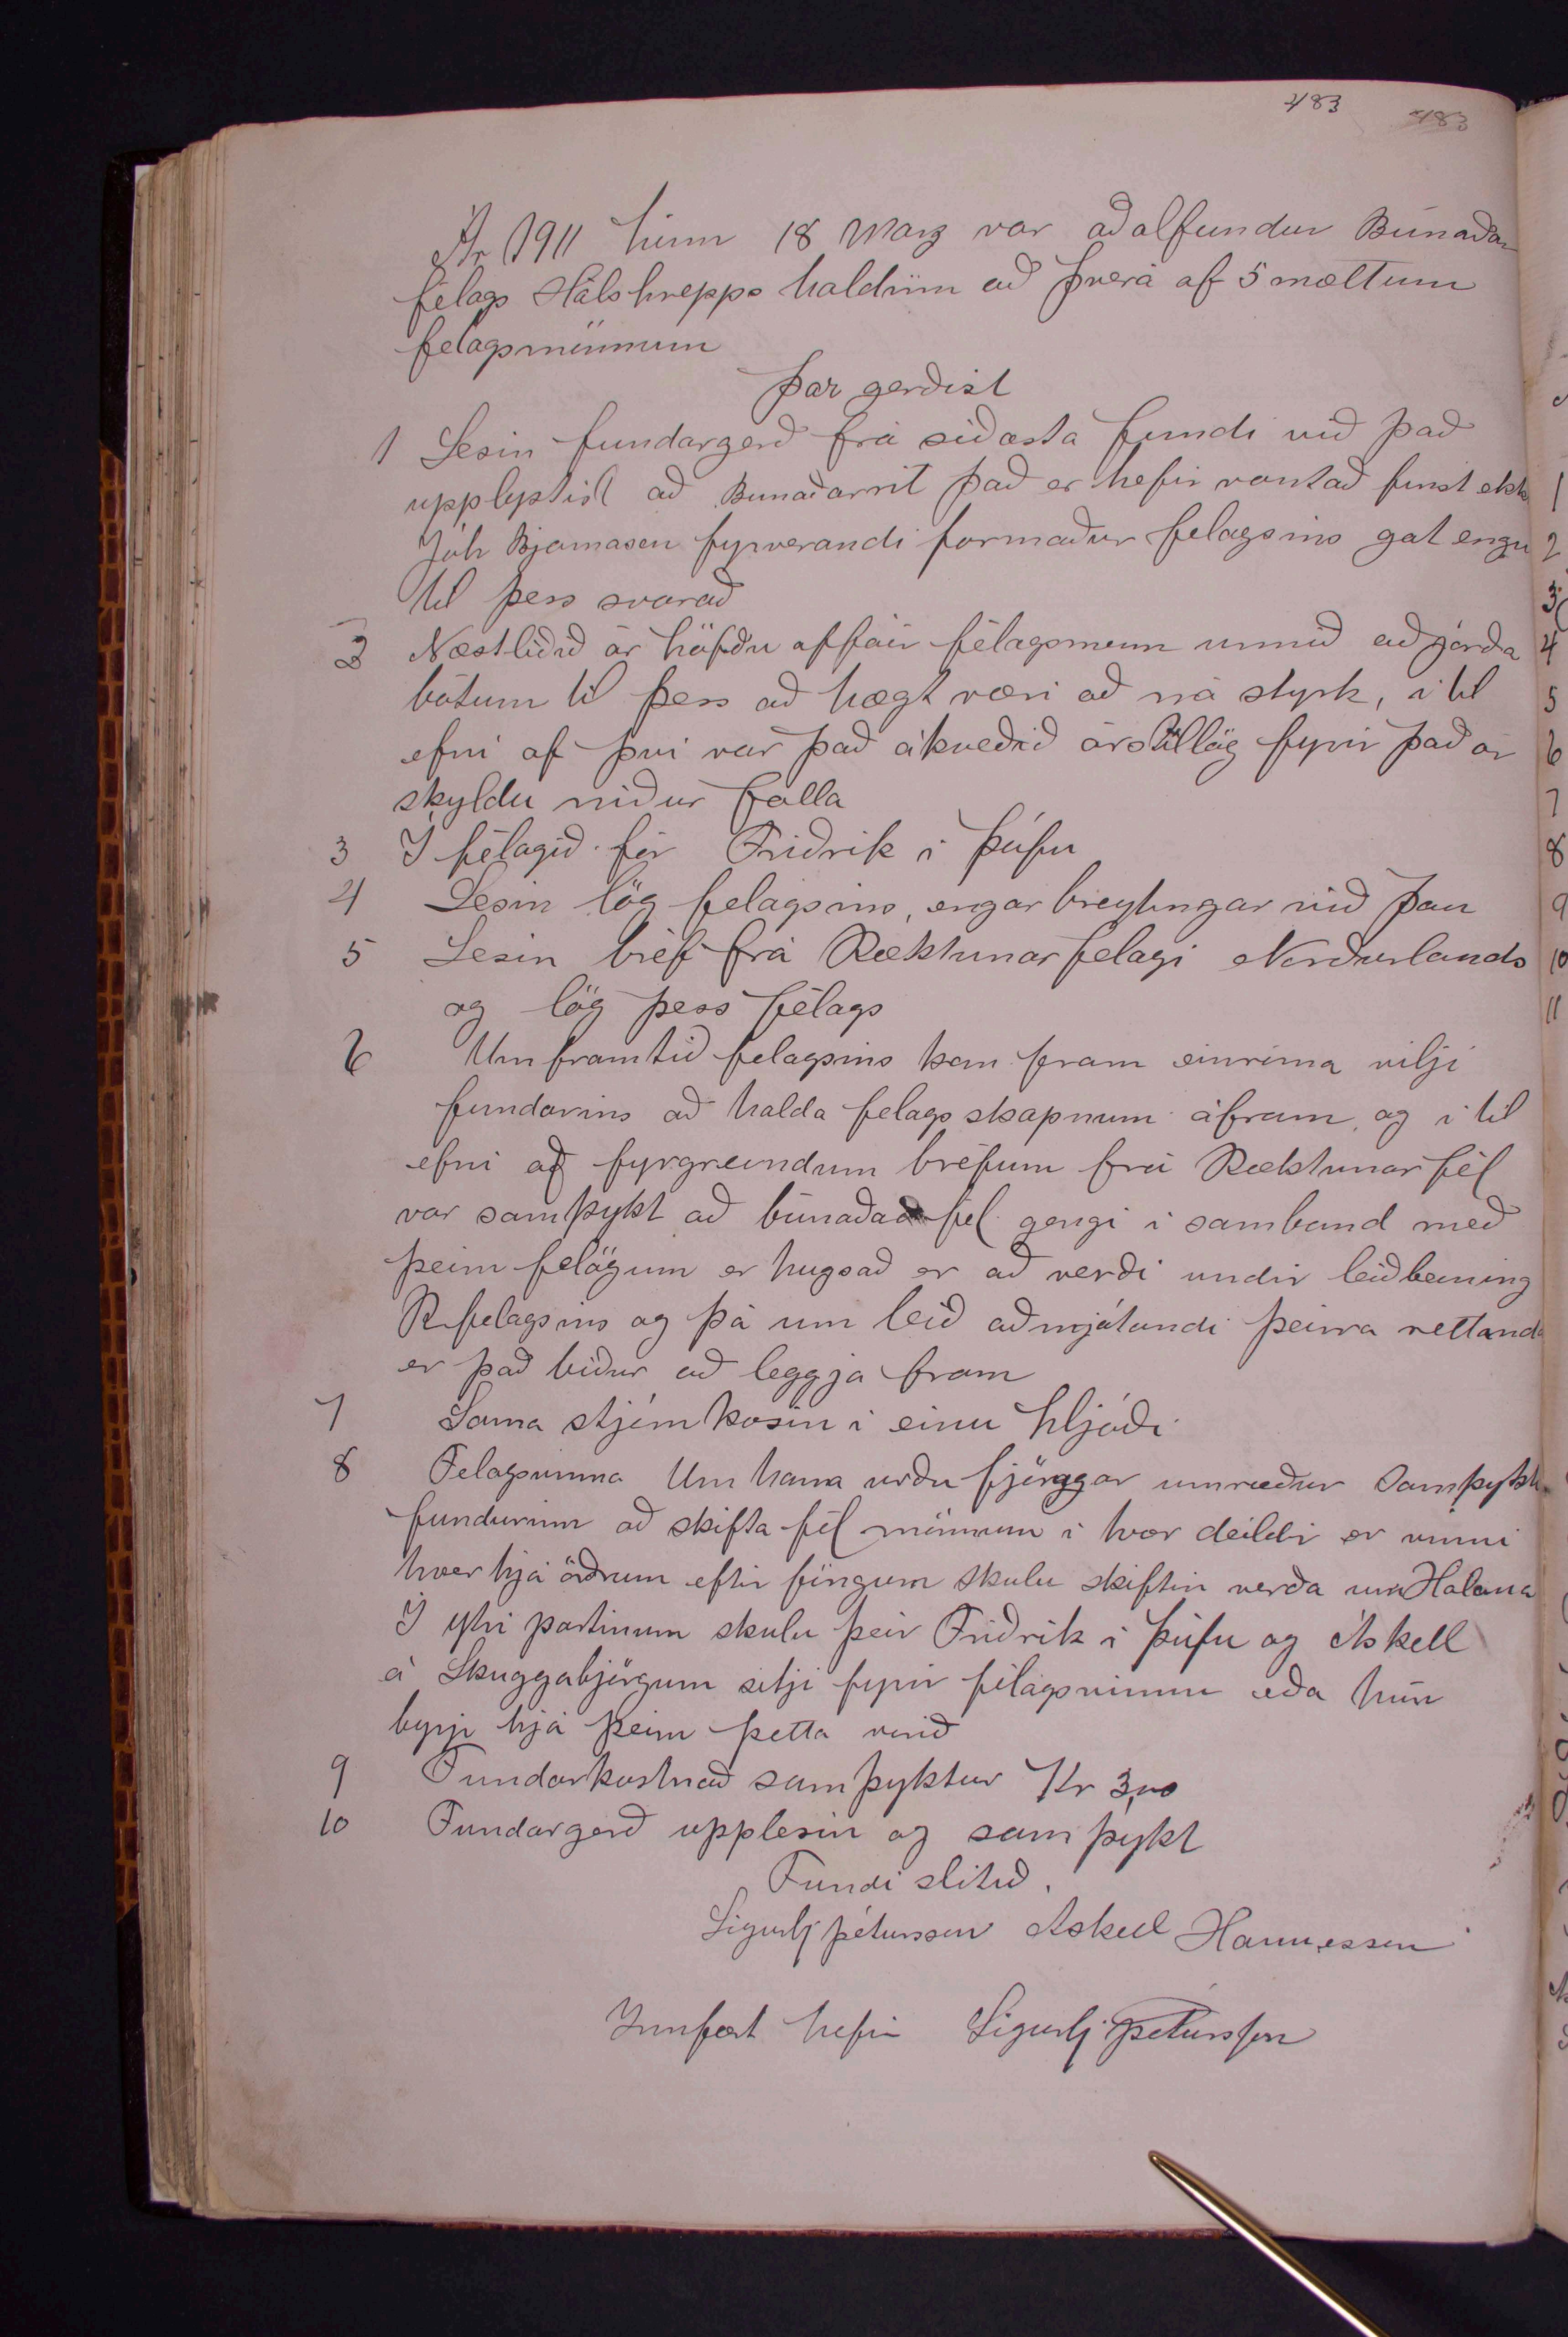 483 483
Ár 1911 hinn 18 Marz var aðalfundur Búnaðar
félags Hálshrepps haldinn að Þverá af 5 mættum
félagsmönnum
Þar gerðist
1 Lesin fundargerð frá síðasta fundi við það
upplystist að Bunaðarrit það er hefir vantað finst ekki
Jóh Bjarnason fyrverandi formaður felagsins gat engu
til þess svarað
2 Næstliðið ár höfðu offáir félagsmenn unnið að jarða
bótum til þess að hægt væri að ná styrk, i til
efni af þvi var það ákveðið árstillög fyrir það ár
skyldu niður falla
3 Í félagið fór Friðrik i Þúfu
4 Lesin lög felagsins, engar breytingar við þau
5 Lesin bréf frá Ræktunarfelagi Norðurlands
og lög þess félags
6 Um framtið felagsins kom fram einróma vilji
fundarins að halda felagsskapnum áfram, og i til
efni af fyrgreindum bréfum frá Ræktunarfél
var samþykt að búnaðar fél gengi i samband með
þeim felögum er hugsað er að verði undir leiðbeining
R.felagsins og þá um leið aðnjótandi þeirra rettinda
er það biður að leggja fram
7 Sama stjórn kosin i einu hljóði
8 Felagsvinna Um hana urðu fjörugar umræður Samþykti
fundurinn að skifta fél mönnum i tvær deildir er vinni
hver hjá öðrum eftir föngum skulu skiftin verða um Halana
Í ytri partinum skulu þeir Friðrik i Þúfu og Áskell
á Skuggabjörgum sitji fyrir félagsvinnu eða hún
byrji hjá þeim þetta vorið
9 Fundarkostnað samþyktur Kr 3,00
10 Fundargerð upplesin og samþykt
Fundi slitið.
Sigurbj Pétursson Askell Hannesson
Innfært hefir Sigurbj Petursson
1
2
3
4
5
6
7
8
9
10
11